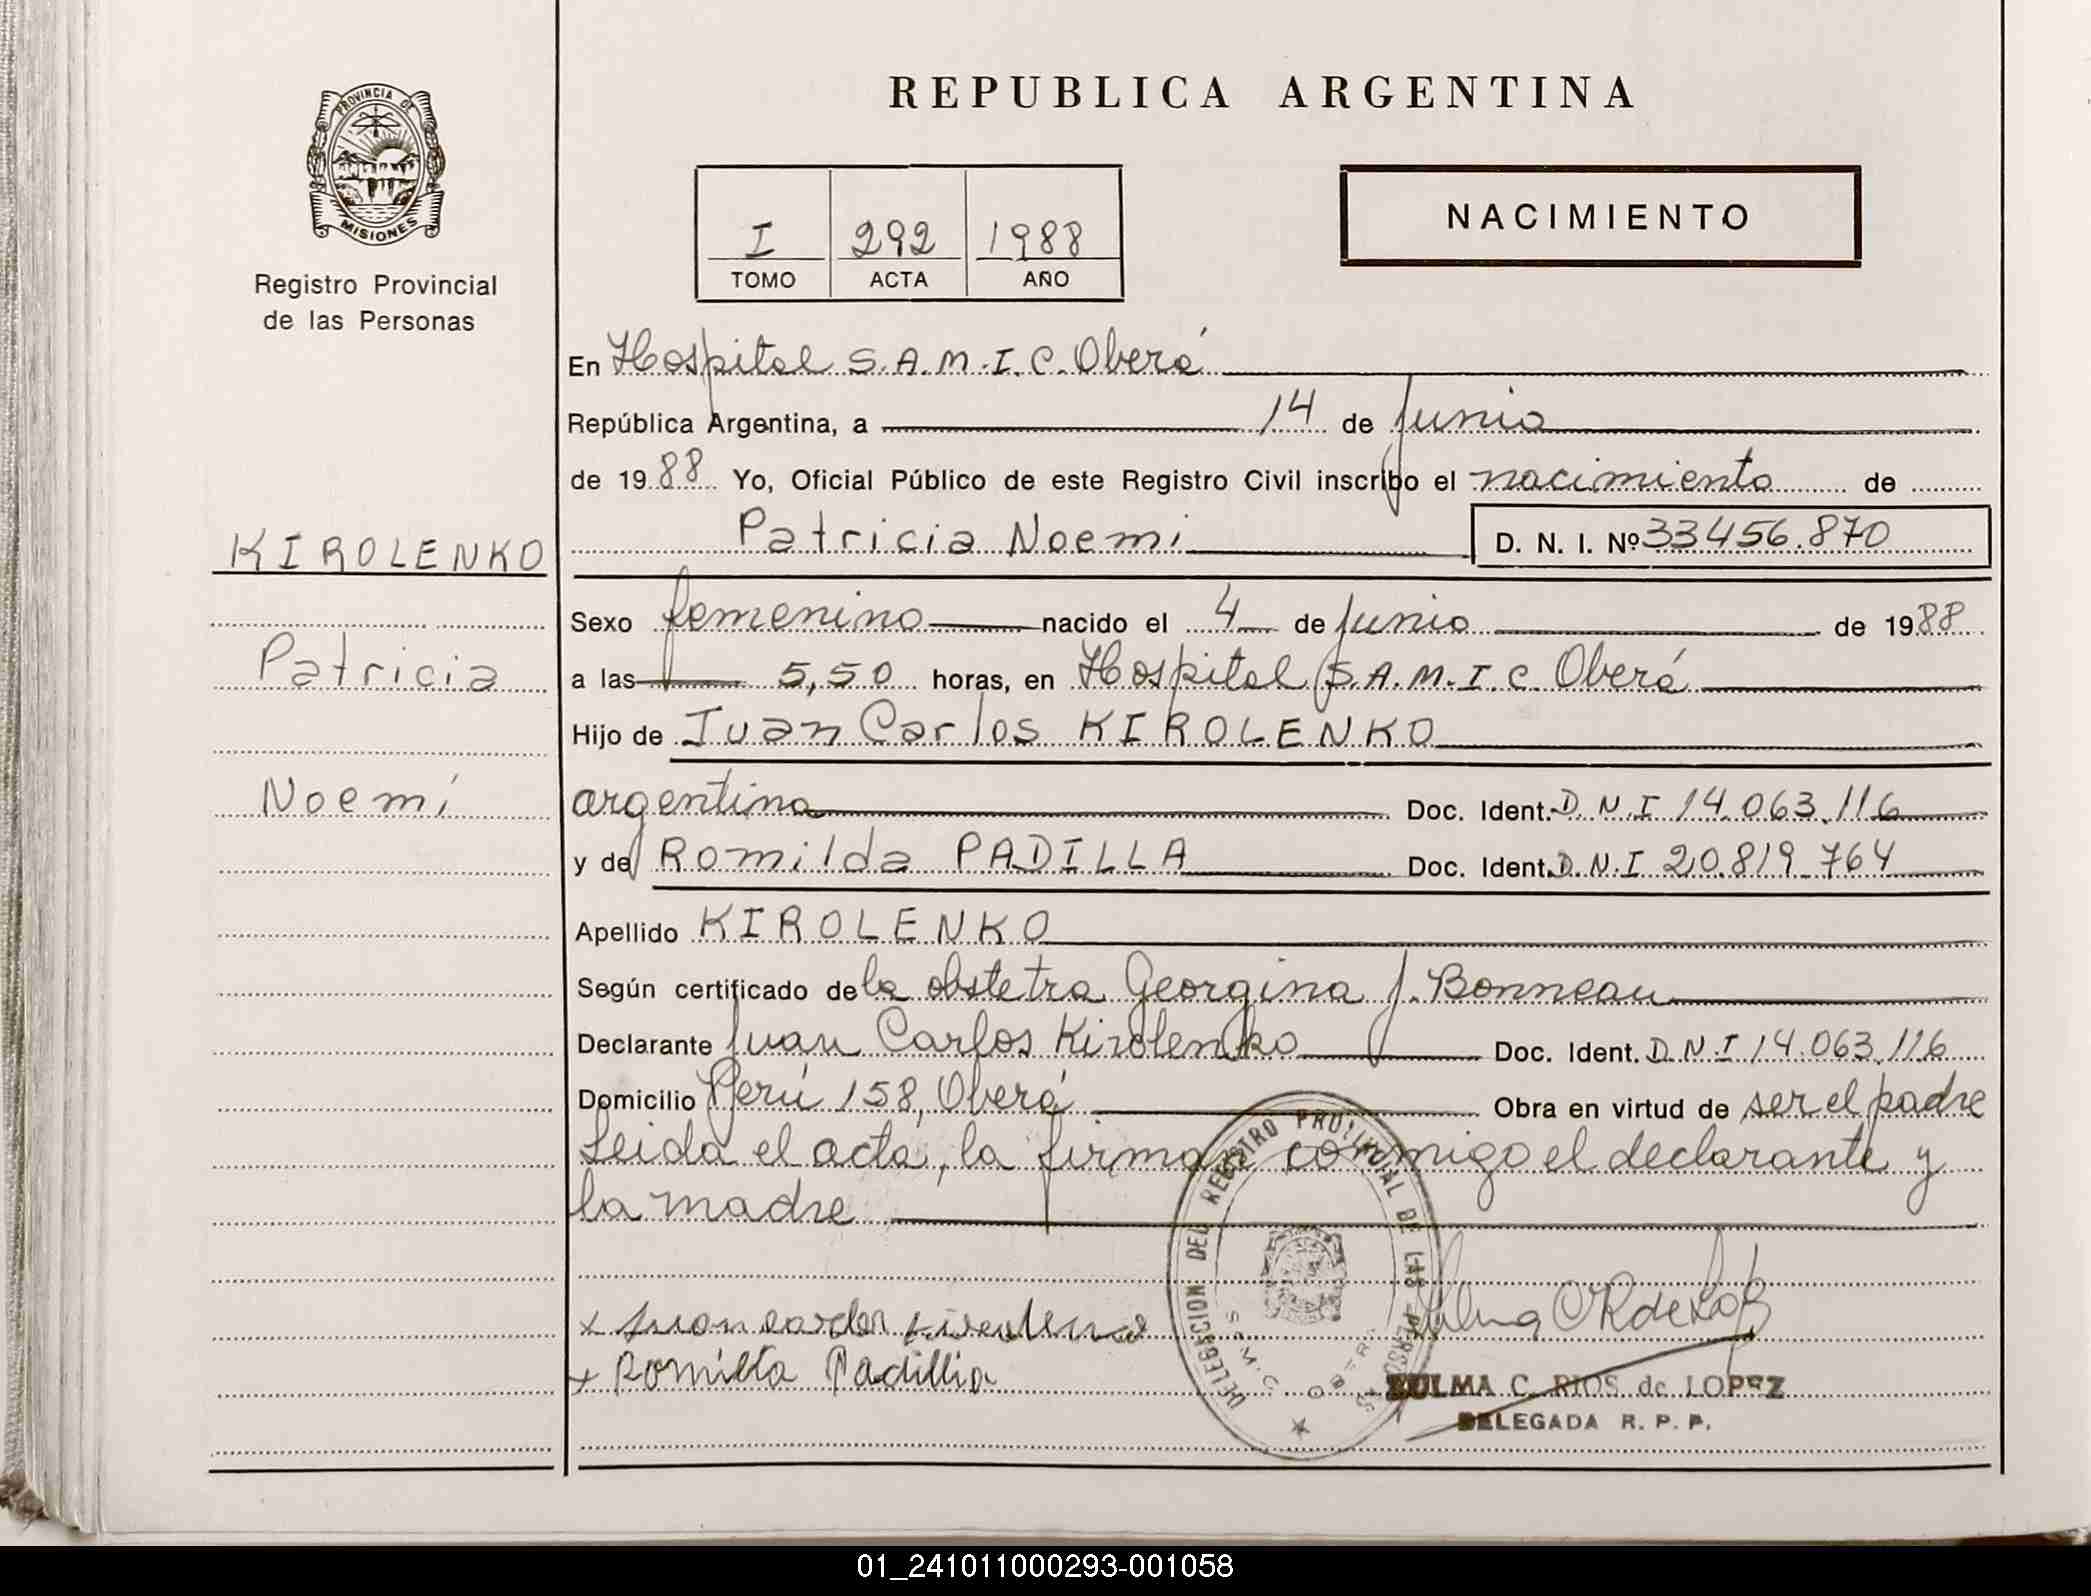 PROVINCIA DE
MISIONES
Registro Provincial
de las Personas
KIROLENKO
Patricia
Noemí
REPUBLICA ARGENTINA
I 292 1988
TOMO ACTA AÑO
NACIMIENTO
En Hospital S.A.M.I.C. Oberá
República Argentina, a 14 de Junio
de 1988 Yo, Oficial Público de este Registro Civil inscribo el nacimiento de
Patricia Noemi D. N. I. Nº 33456.870
Sexo femenino nacido el 4 de Junio de 1988
a las 5,50 horas, en Hospital S.A.M.I.C. Oberá
Hijo de Juan Carlos KIROLENKO
argentina Doc. Ident. D.N.I 14.063.116
y de Romilda PADILLA Doc. Ident. D.N.I 20.819.764
Apellido KIROLENKO
Según certificado de la obstetra Georgina J. Bonneau
Declarante Juan Carlos Kirolenko Doc. Ident. D.N.I 14.063.116
Domicilio Perú 158, Oberá Obra en virtud de ser el padre
Leida el acta, la firman conmigo el declarante y
la madre
DELEGACION DEL REGISTRO PROVINCIAL DE LAS PERSONAS
x Juan carlos
x Romilta Padillia
ZULMA C. RIOS de LOPEZ
DELEGADA R. P. P.
01_241011000293-001058